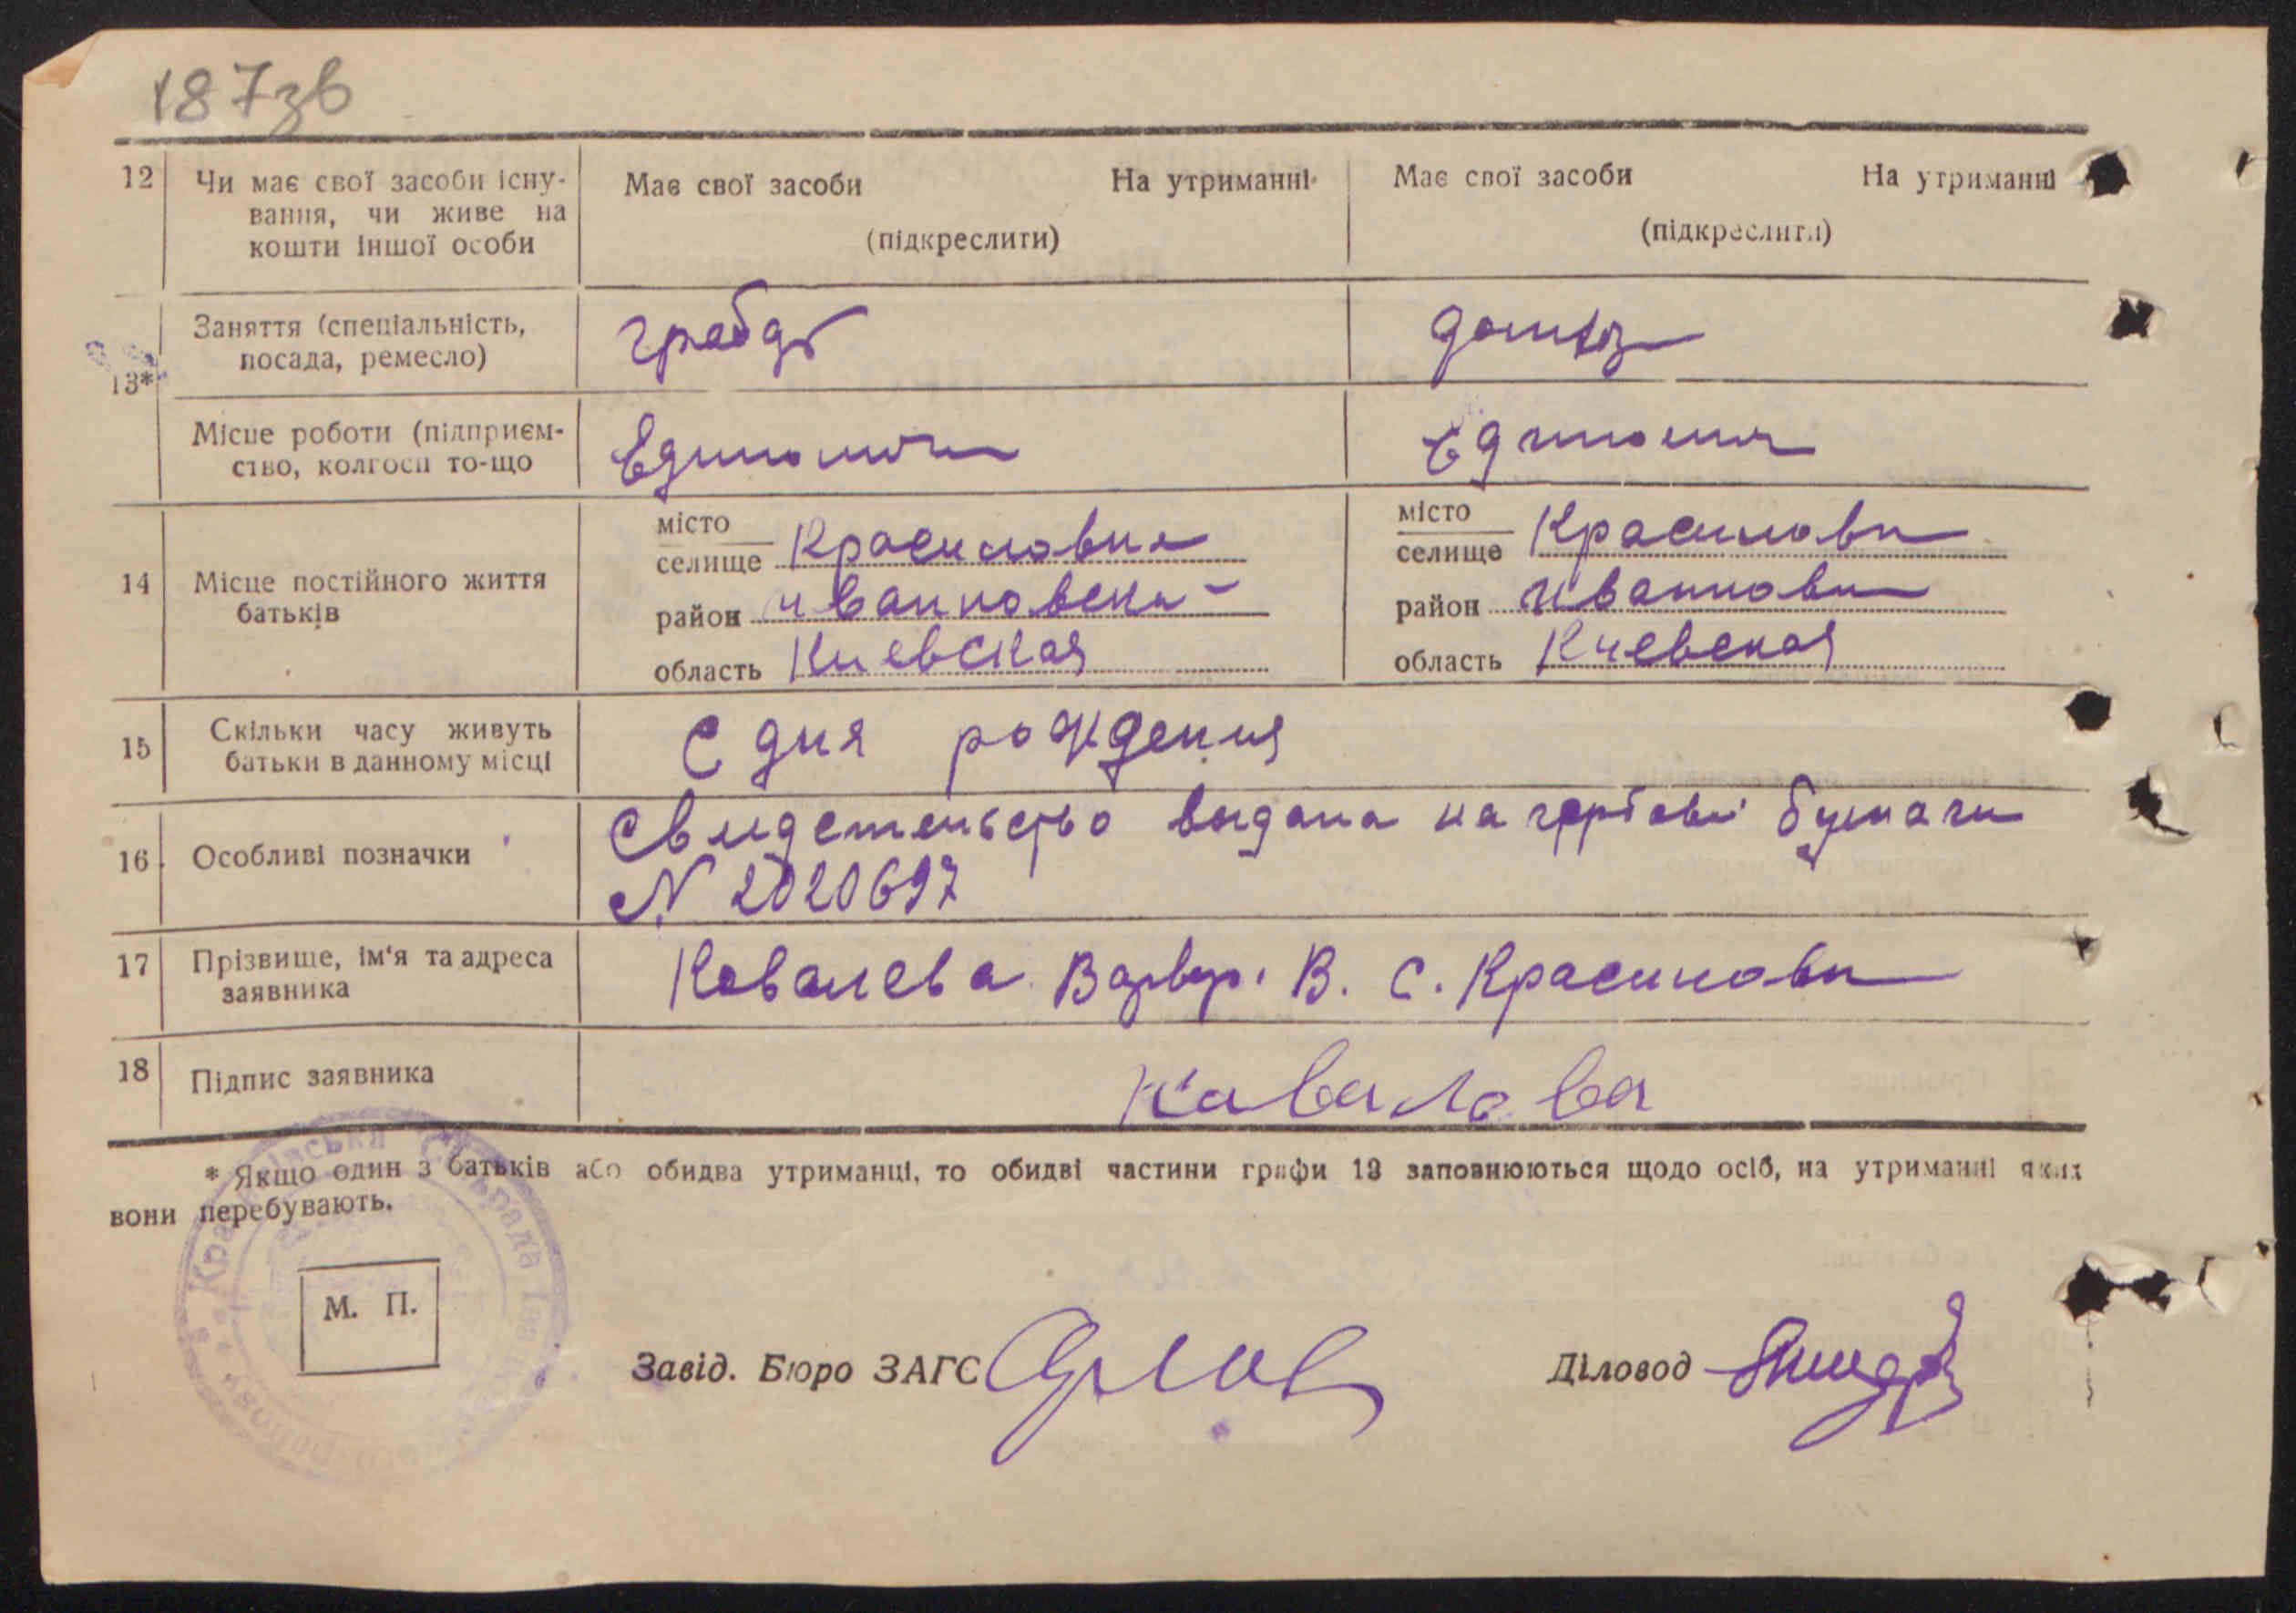 187зв
12 Чи має свої засоби існу-
вання, чи живе на
кошти іншої особи
Має свої засоби На утриманні
(підкреслити)
Має свої засоби На утриманні
(підкреслити)
13*
Заняття (спеціальність,
посада, ремесло)
Місце роботи (підприєм-
ство, колгосп то-що
14 Місце постійного життя
батьків
місто
селище Красиловка
район Иванковск
область Киевская
місто
селище Красиловк
район Иванковк
область Киевская
15 Скільки часу живуть
батьки в данному місці
С дня рождения
16 Особливі позначки
Свидетельство выдана на гербовi бумаги
N 2020697
17 Прізвище, ім'я та адреса
заявника
Ковалева Варвар. В. С. Красиловк
18 Підпис заявника
Кавалова
* Якщо один з батьків або обидва утриманці, то обидві частини графи 13 заповнюються щодо осіб, на утриманні яких
вони перебувають.
М. П.
Завід. Бюро ЗАГС
Діловод